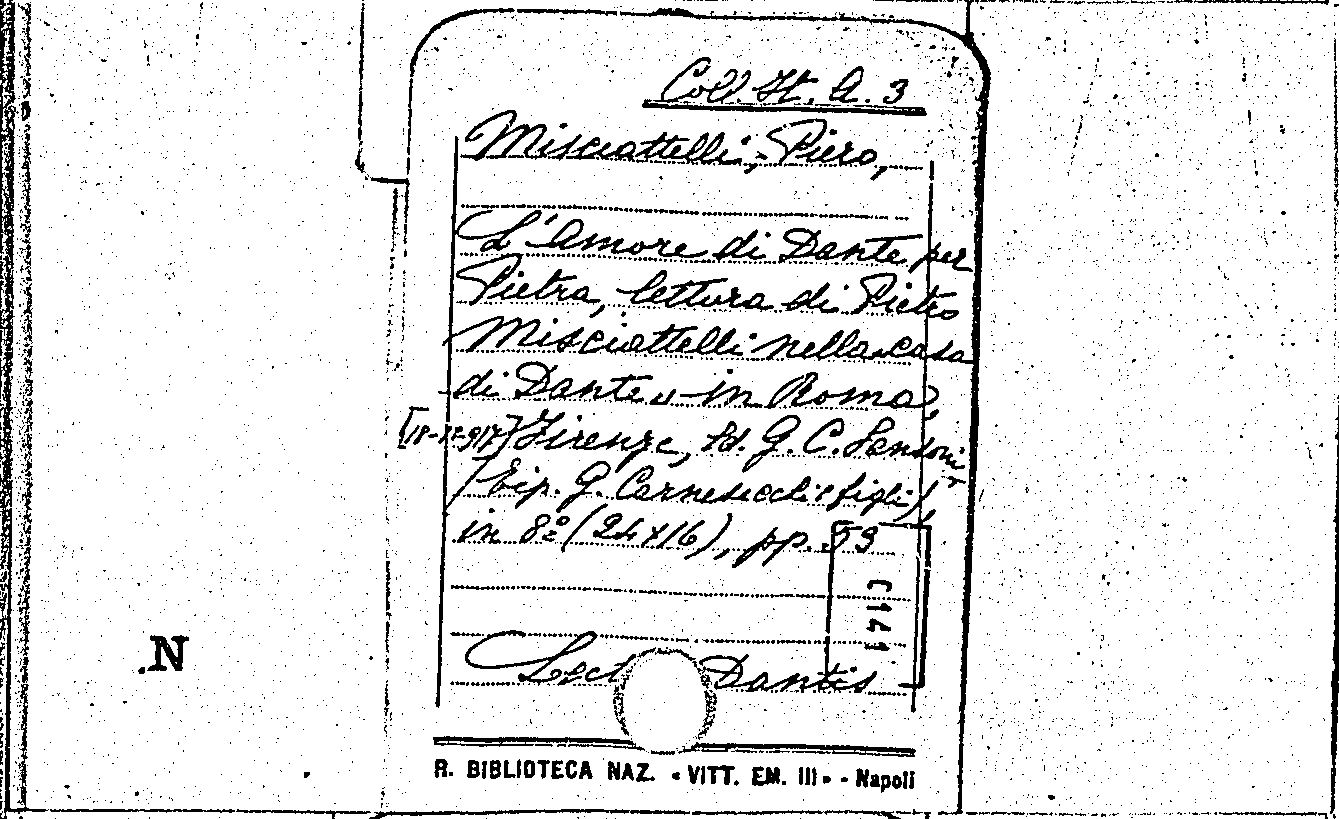 Coll. It. A. 3
Misciattelli, Piero,
L'Amore di Dante per
Pietra, lettura di Pietro
Misciattelli nella «casa
di Dante» in Roma,
Firenze, Ed. G. C. Sansoni
(Tip. G. Carnesecchi e figli),
in 8º (24x16), pp. 53
C141
Lect Dantis
.N
R. BIBLIOTECA NAZ. «VITT. EM. III» - Napoli